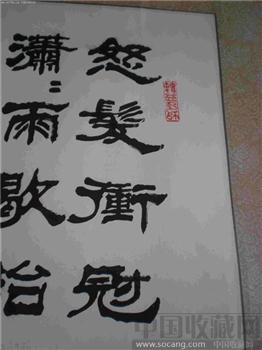 怒髮衝冠
瀟〻雨歇抬
中国收藏网
www.socang.com
中国收藏网